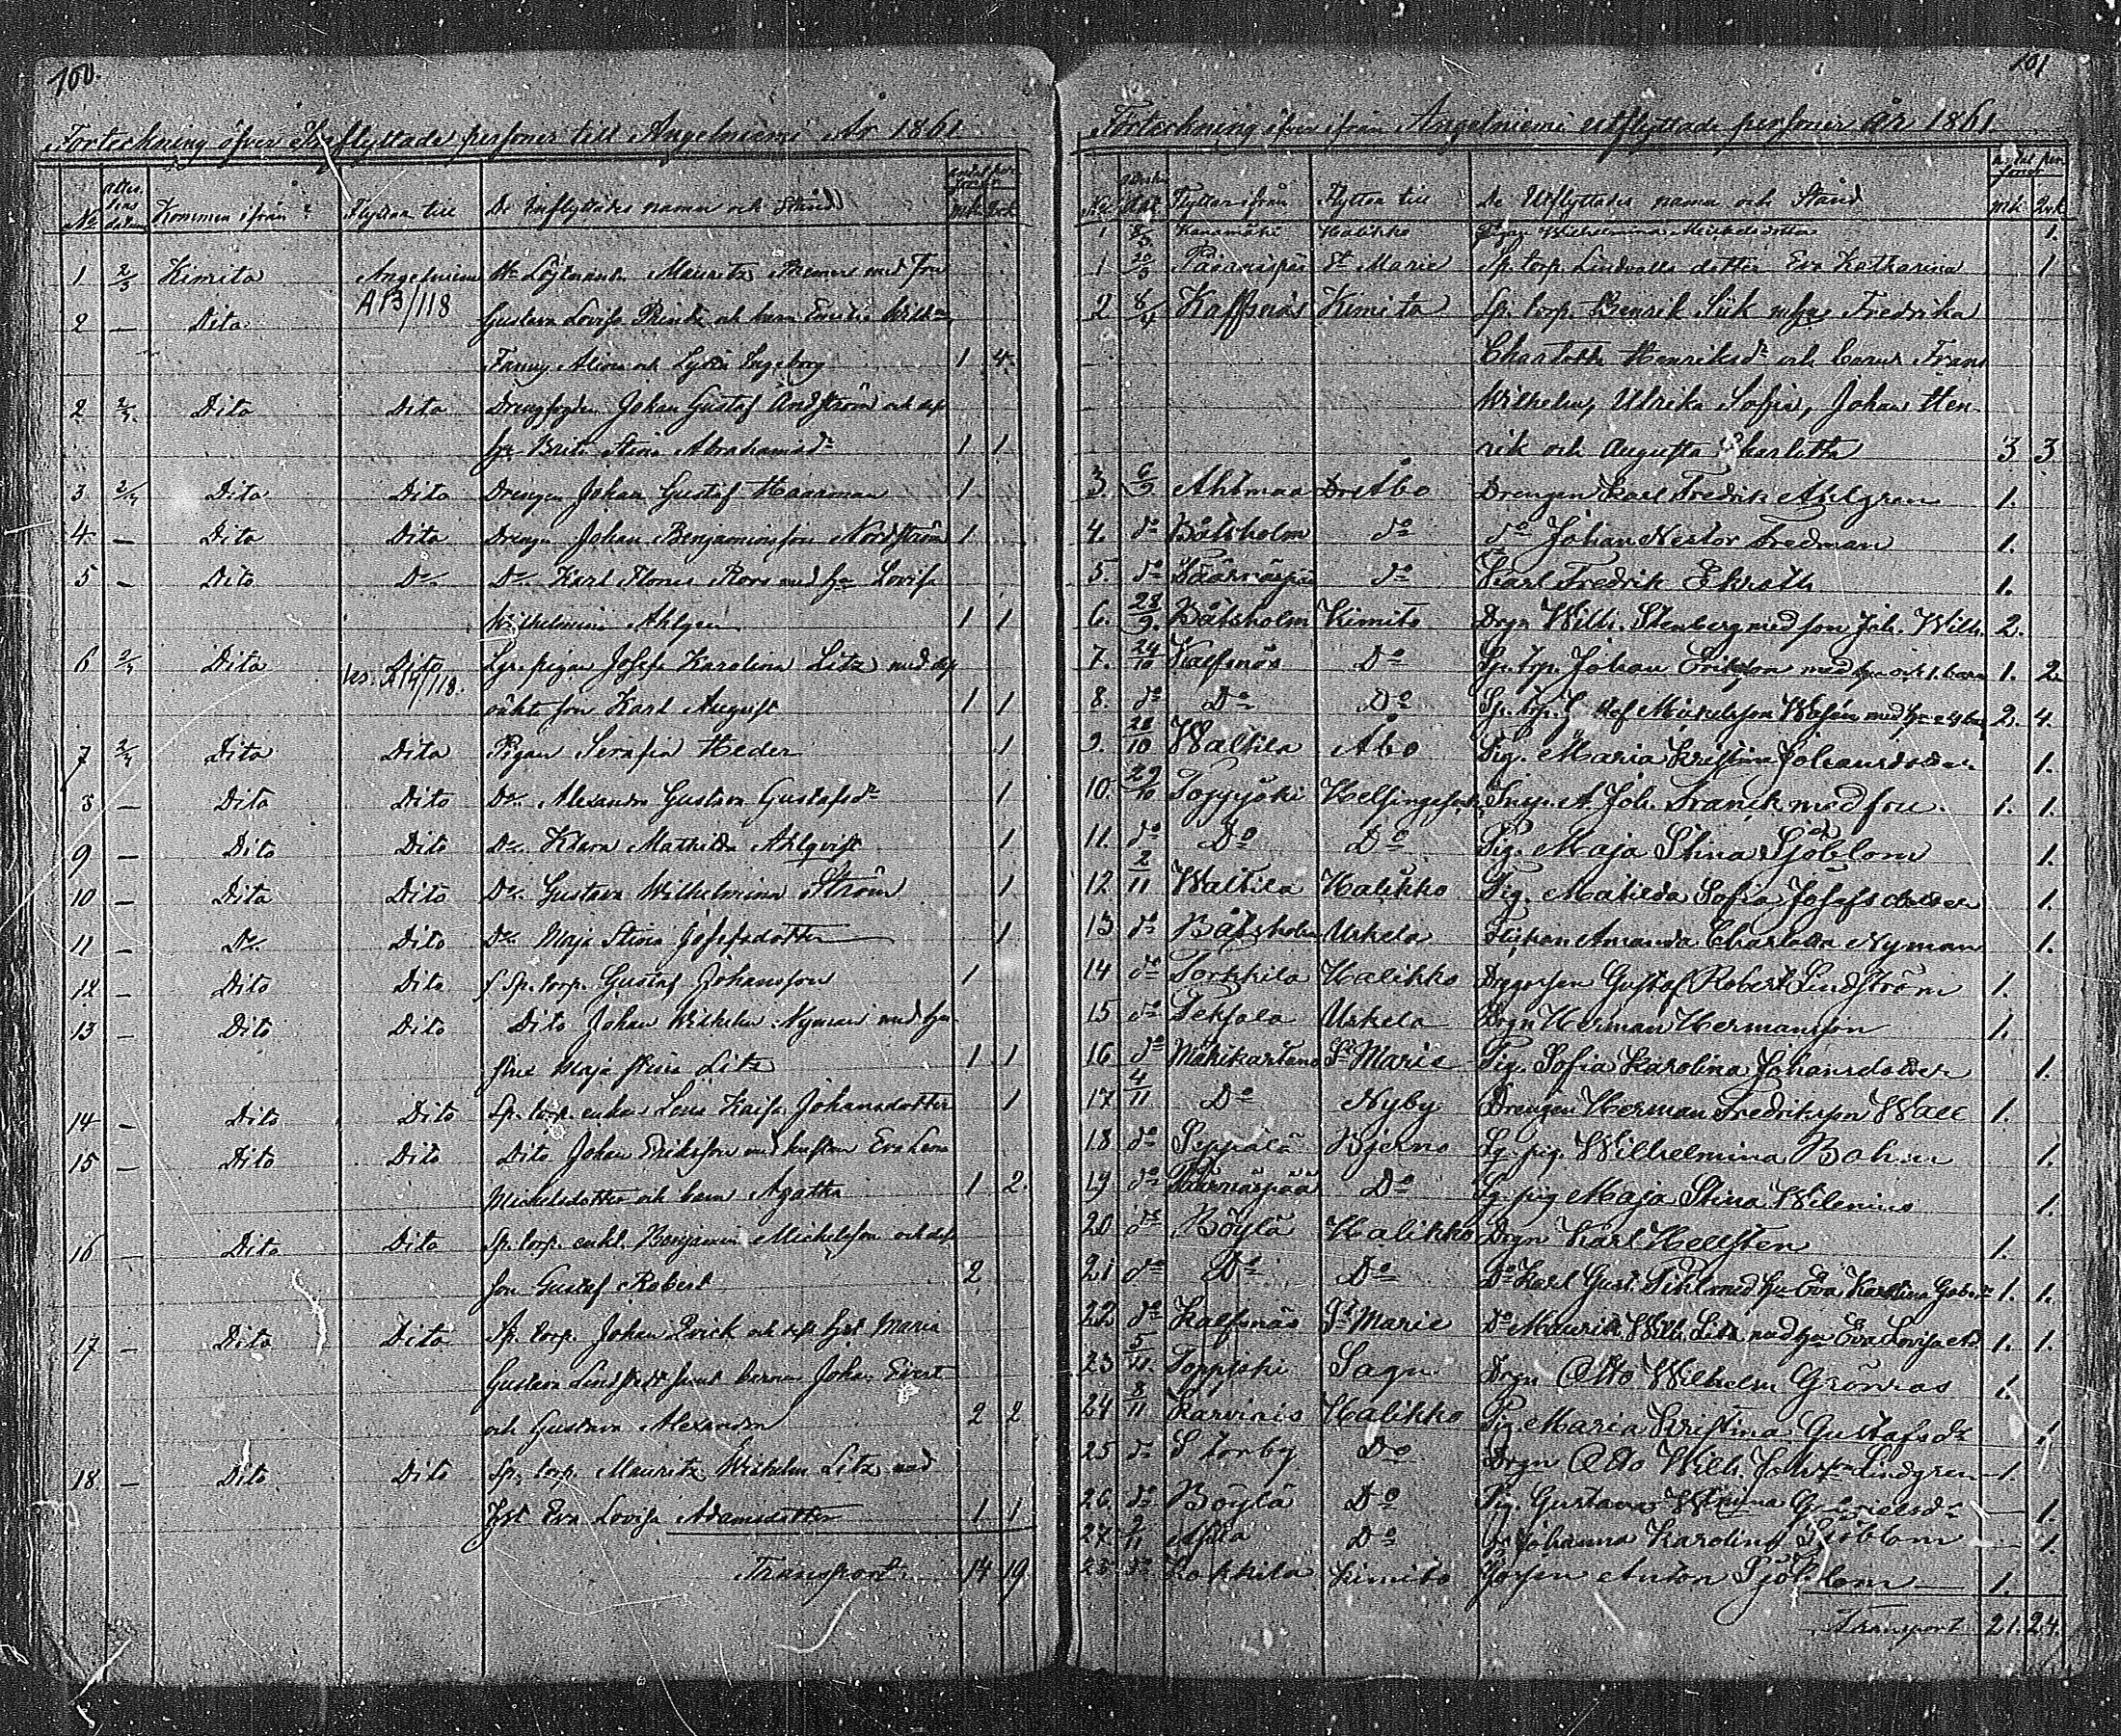 100.
Förteckning öfver Inflyttade personer till Angelniemi År 1861
No Kommen ifrån Flyttar till De Inflyttades namn och Stånd
1 2/3 Kimito Angelniemi Löjtnanten Mauritz med Fru
2 — Dito A13/118 Gustava Lovisa Printz och barn Emilia
Fanny Alina och Lydia Ingeborg 1 4
2 Dito Dito Drengfogden Johan Gustaf Andström och dess
hu Brita Stina Abrahamsdr 1 1
3 Dito Dito Drengen Johan Gustaf Haarman 1
4 — Dito Dito Drengen Johan Benjaminsson Nordström 1
5 — Dito Do Do Karl Floris med hu Lovisa
Wilhelmina Ahlgren 1 1
6 Dito Dito Lgs. pigan Josefa Karolina Litz med dess
A14/118.
oäkta son Karl August 1 1
7 Dito Dito Pigan Serafia Heder 1
8 — Dito Dito Do Alexandra Gustava Gustafsdr 1
9 — Dito Dito Do Klara Mathilda Ahlqvist 1
10 — Dito Dito Do Gustava Wilhelmina Ström 1
11 — Do Dito Do Maja Stina Josefsdotter 1
12 — Dito Dito Sp. torp. Gustaf Johansson 1
13 — Dito Dito Dito Johan Wilhelm Nyman med hu-
stru Maja Stina Litz 1 1
14 — Dito Dito Sp. torp. enka Lena Kaisa Johansdotter 1
15 — Dito Dito Dito Johan Eriksson med hustru Eva Lena
Michelsdotter och barn Agatha 1 2.
16 — Dito Dito Sp. torp. enkl. Benjamin Michelsson och dess
son Gustaf Robert 2
17 — Dito Dito Sp. torp. Johan Qvick och dess hst Maria
Gustava Lindstedt samt barnen Johan Evert
och Gustava Alexandra 2 2
18. — Dito Dito Sp. torp. Mauritz Wilhelm Litz med
hst Eva Lovisa Adamsdotter 1 1
Transport. 14 19
101
Förteckning öfver ifrån Angelniemi utflyttade personer år 1861.
No Flyttar ifrån Flyttar till De Utflyttades namn och Stånd
1 8/3 Kanamäki Halikko Pigan Wilhelmina Michelsdotter 1.
1 20/3 Päärnäspää St Marie Sp. torp. Lindvalls dotter Eva Katharina 1
2 8/4 Kalfsnäs Kimito Sp. torp. Henrik Siik Fredrika
Charlotta Henriksdr och barnen Frans
Wilhelm, Ulrika Sofia, Johan Hen-
rik och Augusta Charlotta 3 3
3. Ahtmaa Åbo Drengen Karl Fredrik Ahlgren 1.
4. do Båtsholm do do Johan Nestor Fredman 1.
5. do Päärnäspää do Karl Fredrik Ekroth 1.
6. 28/9. Båtsholm Kimito Drgn Wilh. Stenberg med son Joh. Wilh. 2.
7. 24/10 Kalfsnäs Do Sp. trp. Johan Eriksson med hu och 1. barn 1. 2.
8. do Do Do Sp. trp. Mickelsson med 2. 4.
9. 28/10 Waltila Åbo Pig. Maria Kristina Johansdotter 1.
10. 29/10 Toppjoki Helsingfors Joh. Franck med fru. 1. 1.
11. do Do Do Pig. Maja Stina Sjöblom 1.
12 2/11 Waltila Halikko Pig. Matilda Sofia Josefsdotter 1.
13 do Båtsholm Uskela Amanda Charlotta Nyman 1.
14 do Torkkila Halikko Gustaf Robert Lindström 1.
15 do Pehjola Uskela Drgn Herman Hermansson 1.
16 do Märikartano St Marie Pig. Sofia Karolina Johansdotter 1.
17 4/11 Do Nyby Drengen Herman Fredriksson Wall 1.
18 do Seppälä Bjerno Lg. pig. Wilhelmina Bohm 1.
19 do Päärnäspää Do Lg. pig Maja Stina Wilenius 1.
20 do Böylä Halikko Drgn Karl Hellsten 1.
21 do Do Do Do Karl Gust. Pihl med hu Eva Karolina 1. 1.
22 do Kalfsnäs St Marie Do Maurits Wilh. Litz med hu Eva Lovisa 1. 1.
23 5/11. Toppjoki Sagu Drgn Otto Wilhelm Grönros 1.
24 8/11 Karviais Halikko Pig. Maria Kristina Gustafsdr 1
25 do Storby Do Drgn Otto Wilh. Lindgren 1.
26. do Böylä Do Pig. Gustava Gabrielsdr 1.
27. 9/11 Do Johanna Karolina Sjöblom 1.
28. do Kokkila Kimito Gossen Anton Sjöblom 1.
Transport 21. 24.